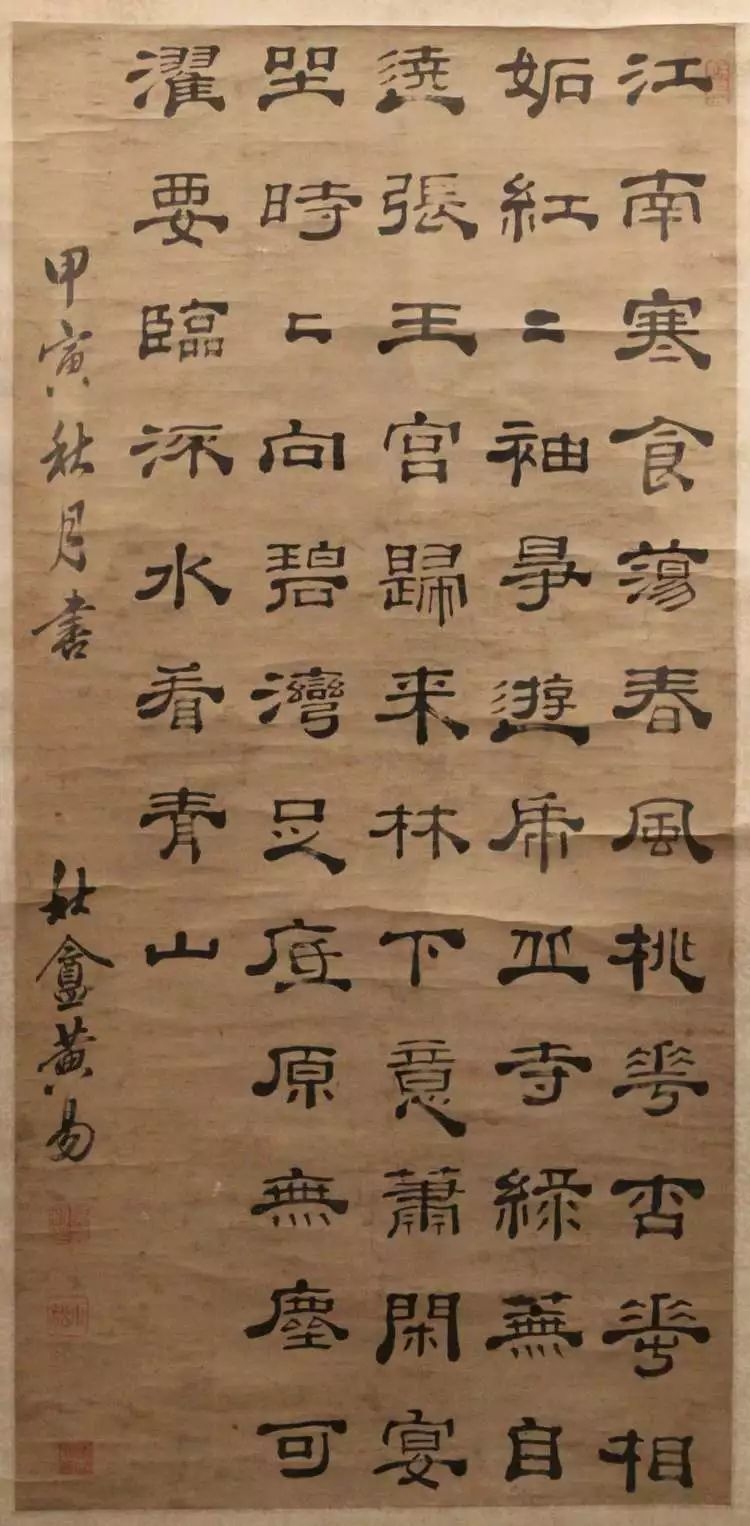 江南寒食蕩春風桃華杏華相
妬紅〻袖爭遊虎丘寺綠蕪自
遶張王宮歸来林下意蕭閑宴
坐時〻向碧灣足底原無塵可
濯要臨深水看青山
甲寅秋月書 秋盦黃易